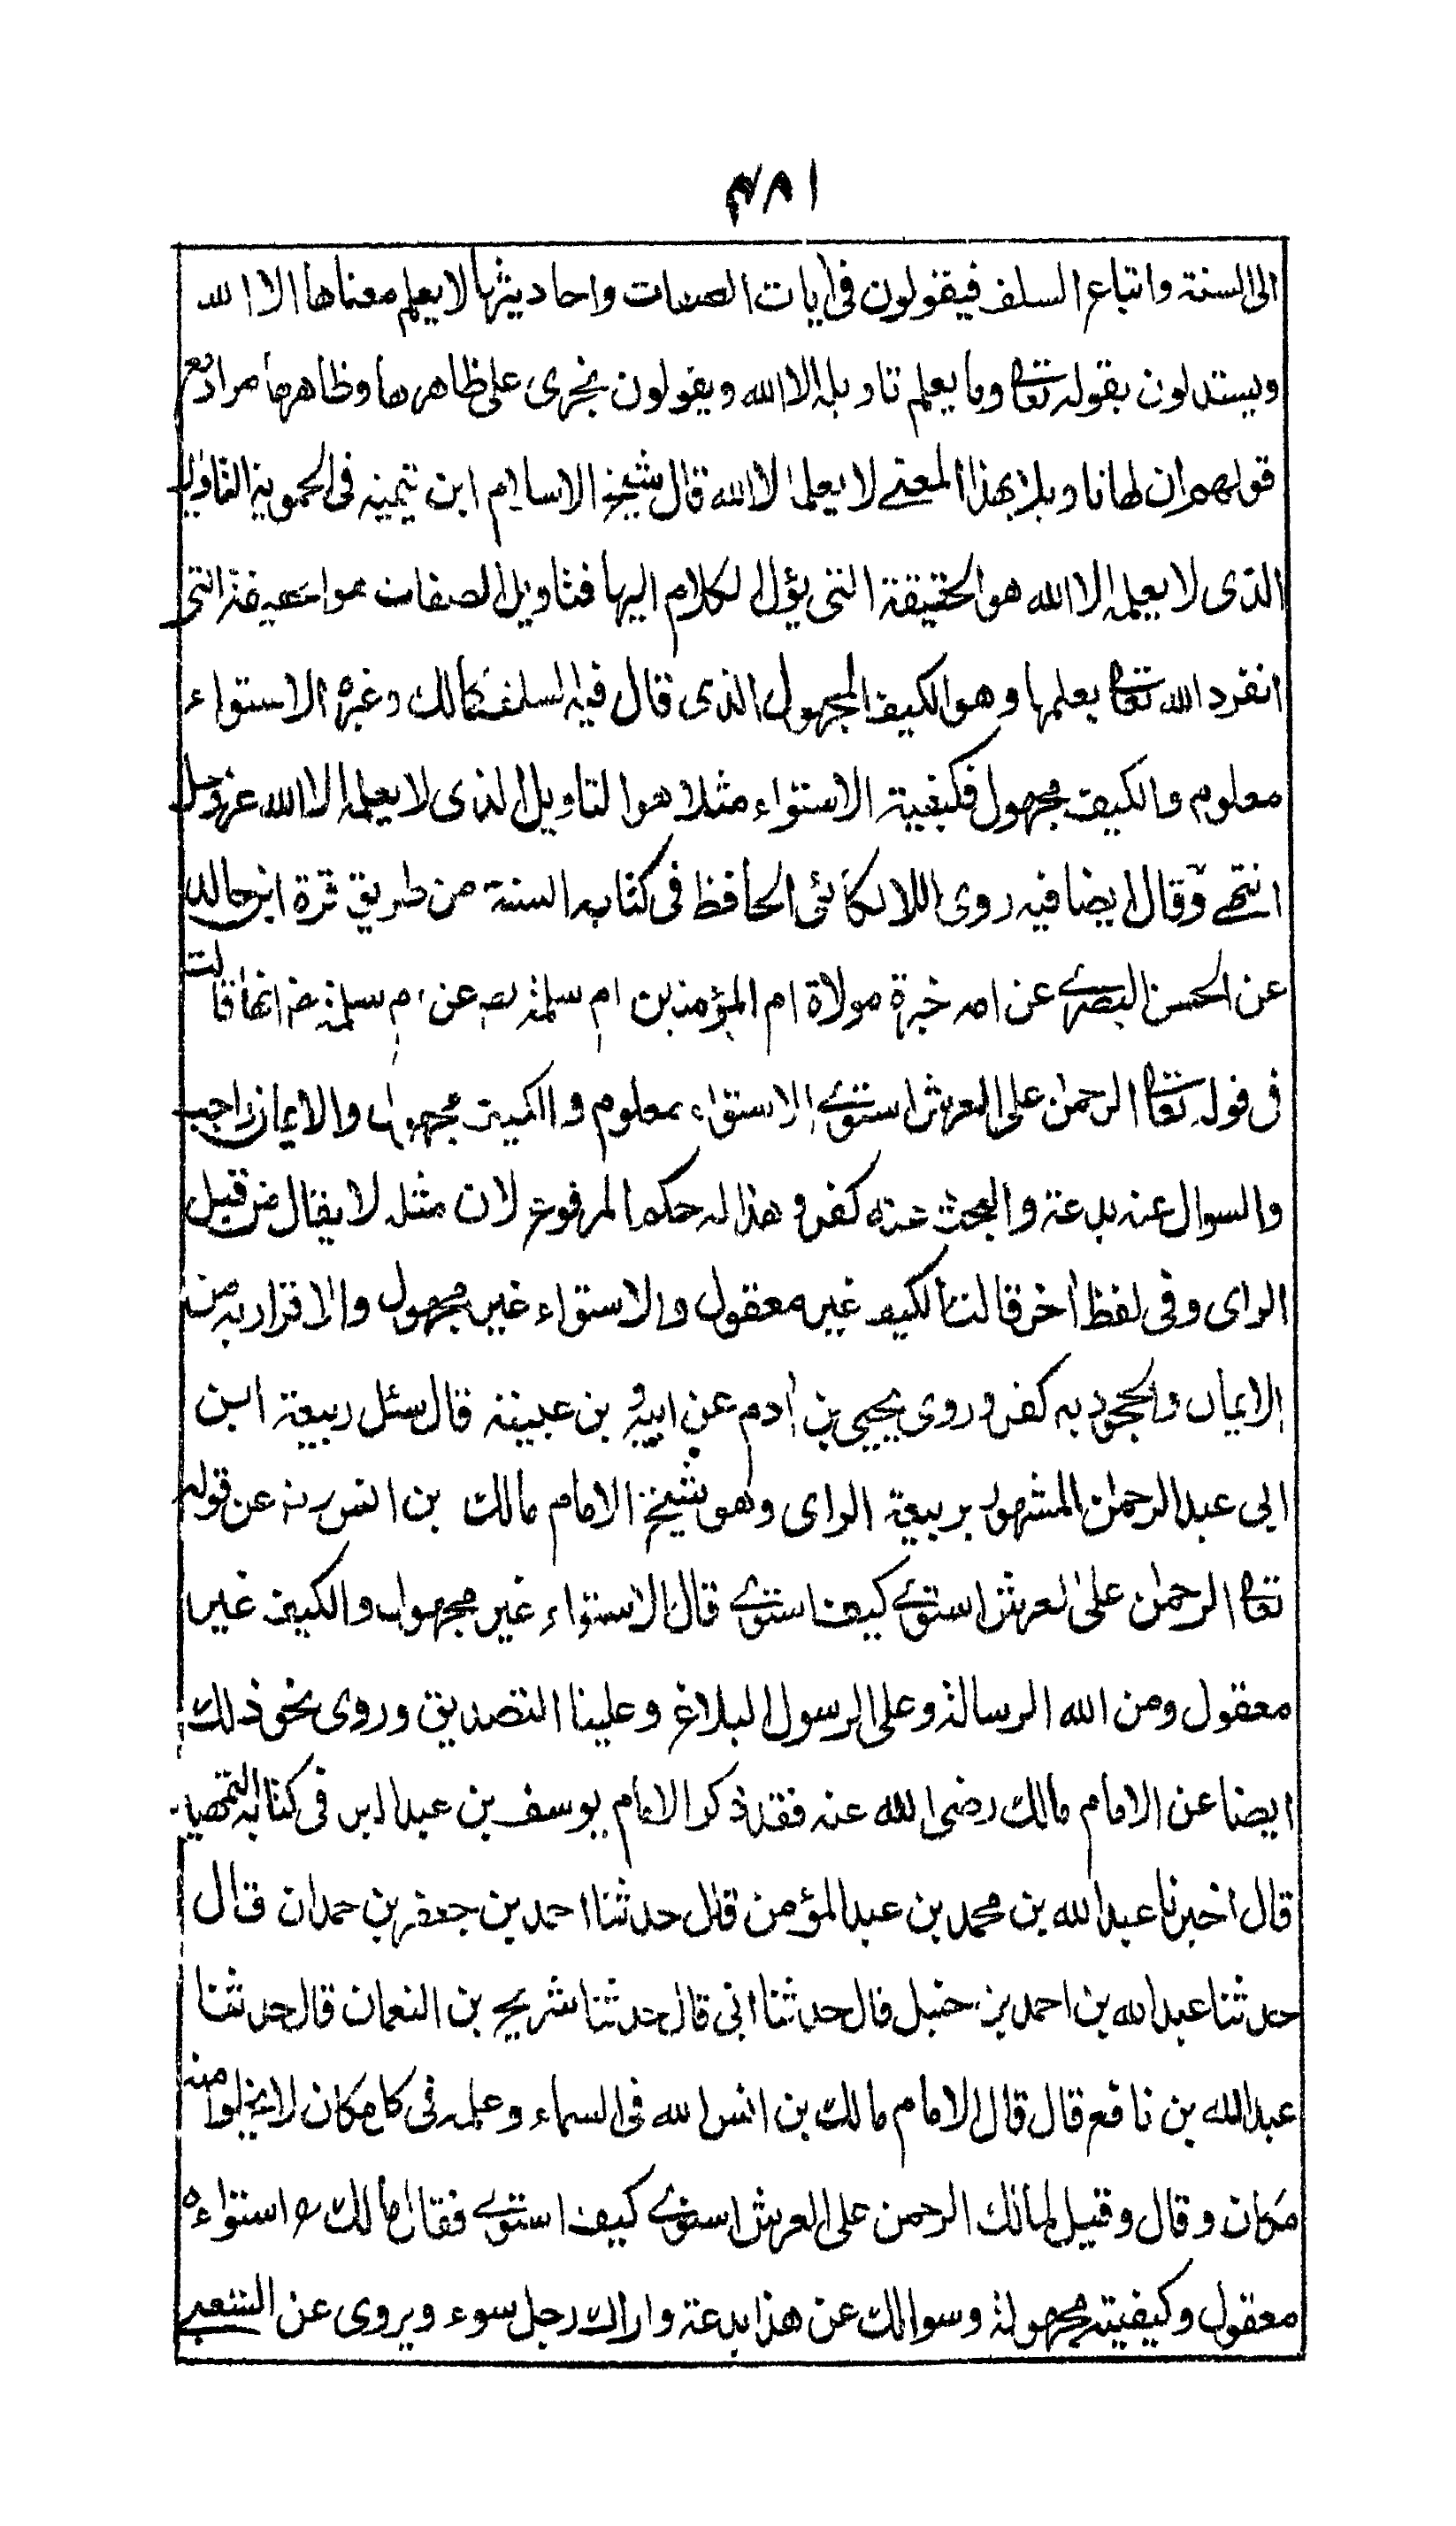 ٤٨١
الى السنة واتباع السلف فيقولون فى ايات الصفات واحاديثها لا يعلم معناها الا الله
ويستدلون بقوله تعا وما يعلم تاويله الا الله ويقولون نجرى على ظاهرها وظاهرها مراد مع
قولهم ان لها تاويلا بهذا المعنے لا يعلمه الا الله قال شيخ الاسلام ابن تيميه فى الحموية التاويل
الذى لا يعلمه الا الله هو الحقيقة التى يؤل الكلام اليها فتاويل الصفات هو الحقيقة التى
انفرد الله تعا بعلمها وهو الكيف المجهول الذى قال فيه السلف كمالك وغيره الاستواء
معلوم والكيف مجهول فكيفية الاستواء مثلا هو التاويل الذى لا يعلمه الا الله عزوجل
انتهے وقال ايضا فيه روى اللالكائى الحافظ فى كتابه السنة من طريق قرة ابن خالد
عن الحسن البصرے عن امه خيرة مولاة ام المؤمنين ام سلمة رضـ عن ام سلمة رضـ انها قالت
فى قوله تعا الرحمن على العرش استوے الاستواء معلوم والكيف مجهول والايمان واجب
والسوال عنه بدعة والبحث عنه كفر و هذا له حكم المرفوع لان مثله لا يقال من قبل
الراى وفى لفظ اخر قالت الكيف غير معقول والاستواء غير مجهول والاقرار به من
الايمان والجحود به كفر وروى يحيى بن ادم عن ابيه و بن عيينة قال سئل ربيعة ابن
ابى عبد الرحمان المشهور بربيعة الراى وهو شيخ الامام مالك بن انس رضـ عن قوله
تعا الرحمان على العرش استوے كيف استوے قال الاستواء غير مجهول والكيف غير
معقول ومن الله الرسالة وعلى الرسول البلاغ وعلينا التصديق وروى نحو ذلك
ايضا عن الامام مالك رضى الله عنه فقد ذكر الامام يوسف بن عبد البر فى كتابه التمهيد
قال اخبرنا عبد الله بن محمد بن عبد المؤمن قال حدثنا احمد بن جعفر بن حمدان قال
حدثنا عبد الله بن احمد بن حنبل قال حدثنا ابى قال حدثنا شريح بن النعمان قال حدثنا
عبد الله بن نافع قال قال الامام مالك بن انس الله فى السماء وعلمه فى كل مكان لا يخلوا منه
مكان وقال وقيل لمالك الرحمن على العرش استوے كيف استوے فقال مالك رح استواءه
معقول وكيفيته مجهولة وسوالك عن هذا بدعة واراك رجل سوء ويروى عن الشعبے